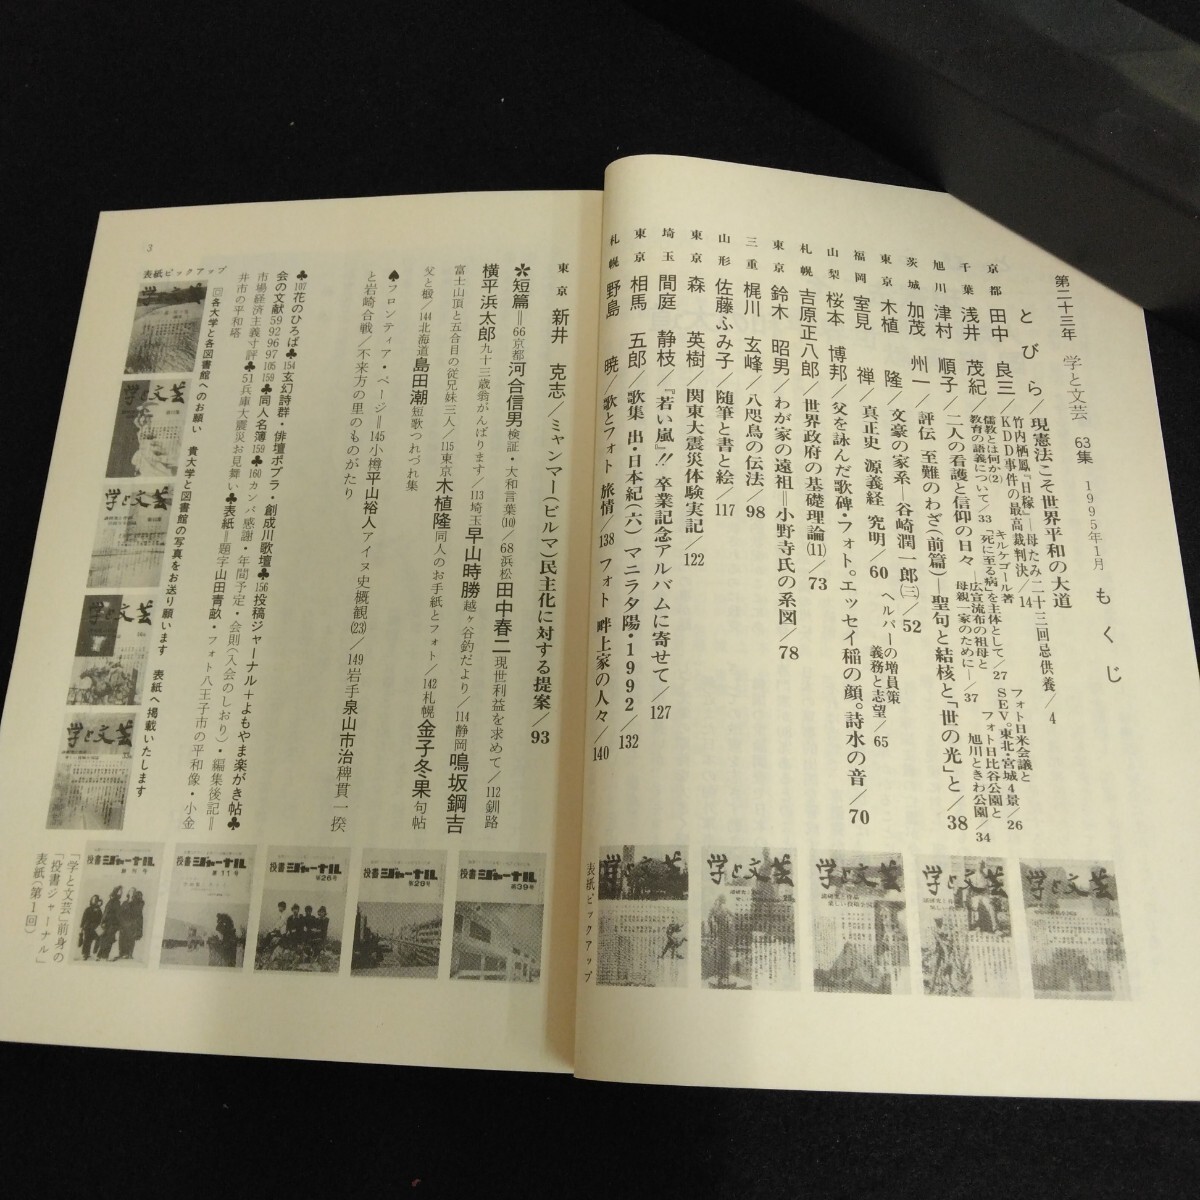 第二十三年 学と文芸 63集 1995年1月 もくじ
とびら/現憲法こそ世界平和の大道
京都 田中 良三/竹内栖鳳『日稼』―母たみ二十三回忌供養/4
KDD事件の最高裁判決/14 フォト日米会議と
SEV。東北・宮城4景/26
千葉 浅井 茂紀/儒教とは何か(2) キルケゴール著
『死に至る病』を主体として/27 フォト日比谷公園と
教育の語義について/33 広宣流布の祖母と
旭川ときわ公園/34
旭川 津村 順子/二人の看護と信仰の日々 母親一家のために―/37
茨城 加茂 州一/評伝 至難のわざ(前篇)―聖句と結核と「世の光」と/38
東京 木植 隆/文豪の家系―谷崎潤一郎(三)/52
福岡 室見 禅/真正史 源義経 究明/60 ヘルパーの増員策
義務と志望/65
山梨 桜本 博邦/父を詠んだ歌碑・フォト。エッセイ稲の顔。詩水の音/70
札幌 吉原正八郎/世界政府の基礎理論(11)/73
東京 鈴木 昭男/わが家の遠祖=小野寺氏の系図/78
三重 梶川 玄峰/八咫烏の伝法/98
山形 佐藤ふみ子/随筆と書と絵/117
東京 森 英樹/関東大震災体験実記/122
埼玉 間庭 静枝/『若い嵐』!! 卒業記念アルバムに寄せて/127
東京 相馬 五郎/歌集 出・日本紀(六) マニラ夕陽・1992/132
札幌 野島 暁/歌とフォト 旅情/138 フォト 畔上家の人々/140
表紙ピックアップ
東京 新井 克志/ミャンマー(ビルマ)民主化に対する提案/93
✻短篇=66京都河合信男検証・大和言葉(10)/68浜松田中春二現世利益を求めて/112釧路
横平浜太郎九十三歳翁がんばります/113埼玉早山時勝越ヶ谷釣だより/114静岡鳴坂鋼吉
富士山頂と五合目の従兄妹三人/115東京木植隆同人のお手紙とフォト/142札幌金子冬果句帖
父と椴/144北海道島田潮短歌つれづれ集
♠フロンティア・ページ=145小樽平山裕人アイヌ史概観(23)/149岩手泉山市治稗貫一揆
と岩崎合戦/不来方の里のものがたり
♣107花のひろば♣154玄幻詩群・俳壇ポプラ・創成川歌壇♣156投稿ジャーナル+よもやま楽がき帖♣
会の文献59 92 96 97 105 159♣同人名簿159♣160カンパ感謝・年間予定・会則(入会のしおり)・編集後記=
市場経済主義寸評♣51兵庫大震災お見舞い♣表紙=題字山田青畝・フォト八王子市の平和像・小金
井市の平和塔
回各大学と各図書館へのお願い 貴大学と図書館の写真をお送り願います 表紙へ掲載いたします
表紙ピックアップ
3
学と文芸
学と文芸
学と文芸
学と文芸
学と文芸
学と文芸
学と文芸
学と文芸
学と文芸
学と文芸
投書ジャーナル 第39号
投書ジャーナル 第28号
投書ジャーナル 第26号
投書ジャーナル 第11号
投書ジャーナル
「学と文芸」前身の
「投書ジャーナル」
表紙(第1回)